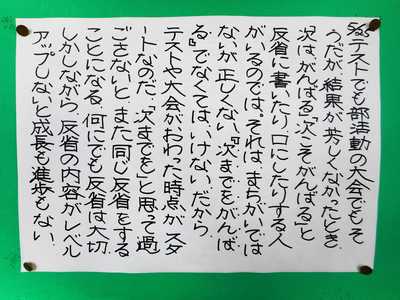 テストでも部活動の大会でもそ
うだが、結果が芳しくなかったとき、
「次は、がんばる」「次こそがんばる」と
反省に書いたり、口にしたりする人
がいるのでは。それは、まちがいでは
ないが正しくない。『次までをがんば
る』でなくては、いけない。だから、
テストや大会がおわった時点が、スタ
ートなのだ。「次までを」と思って過
ごさないと、また同じ反省をする
ことになる。何にでも反省は大切。
しかしながら、反省の内容がレベル
アップしないと成長も進歩もない。